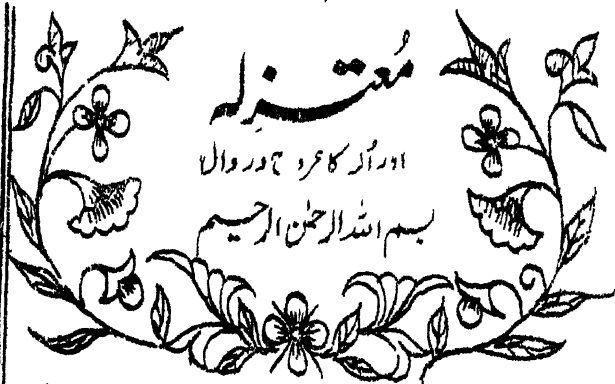 مُعتزِلہ
اور اُن کا عروج و زوال
بسم اللہ الرحمٰن الرحیم